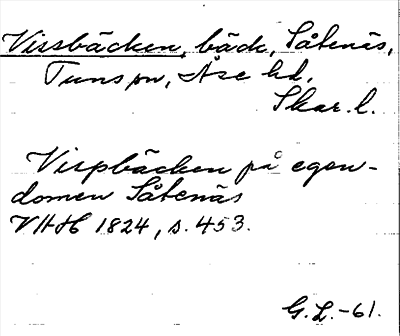 Vissbäcken, bäck, Såtenäs,
Tuns sn, Åse hd,
Skar. l.
Vispbäcken på egen-
domen Såtenäs
VHH 1824, s. 453.
G.L.-61.